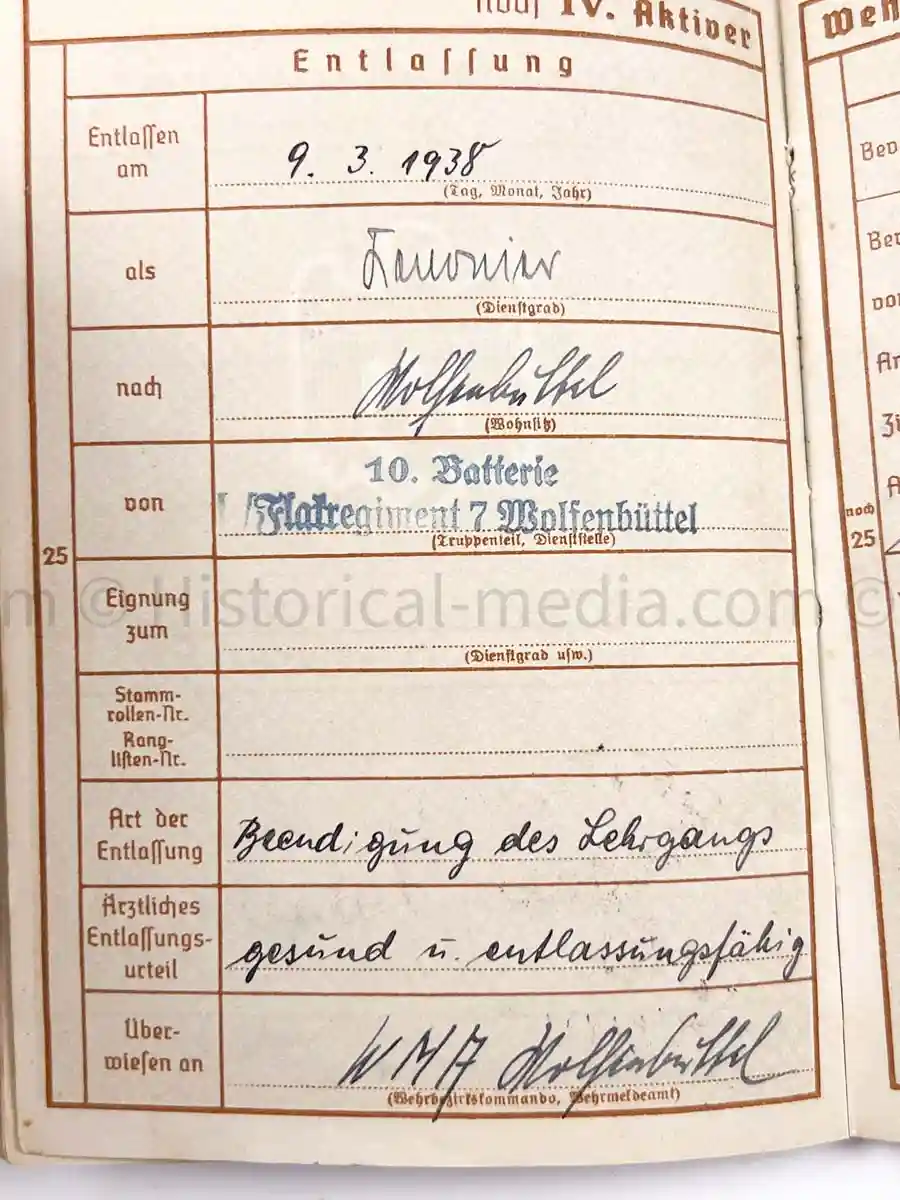 noch IV. Aktiver
Entlassung
Entlassen am
9. 3. 1938
(Tag, Monat, Jahr)
als
Kanonier
(Dienstgrad)
nach
Wolfenbüttel
(Wohnsitz)
von
10. Batterie
Flakregiment 7 Wolfenbüttel
(Truppenteil, Dienststelle)
25
Eignung zum
(Dienstgrad usw.)
Stamm-
rollen-Nr.
Rang-
listen-Nr.
Art der
Entlassung
Beendigung des Lehrgangs
Ärztliches
Entlassungs-
urteil
gesund u. entlassungsfähig
Über-
wiesen an
Wolfenbüttel
(Wehrbezirkskommando, Wehrmeldeamt)
© Historical-media.com ©
Weh
noch
25